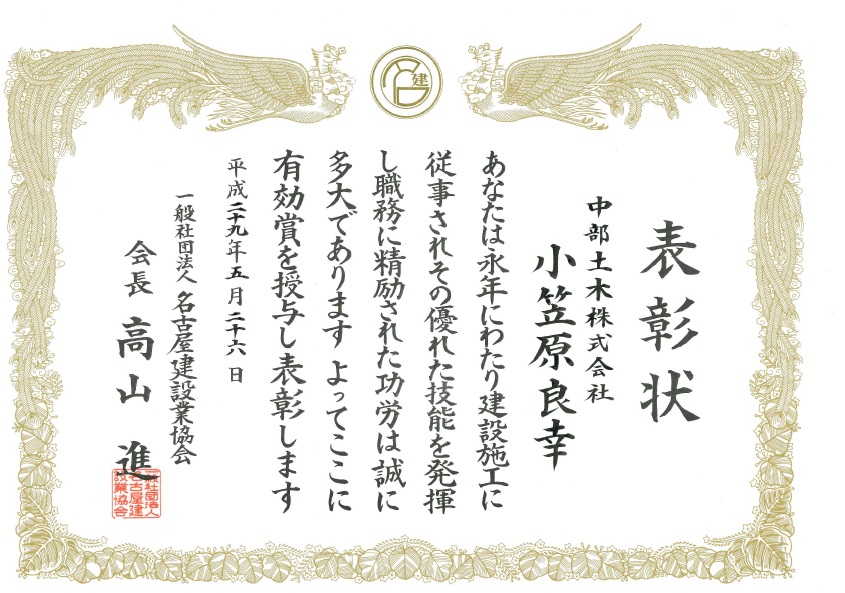 建
表彰状
中部土木株式会社
小笠原良幸
あなたは永年にわたり建設施工に
従事されその優れた技能を発揮
し職務に精励された功労は誠に
多大であります よってここに
有効賞を授与し表彰します
平成二十九年五月二十六日
一般社団法人 名古屋建設業協会
会長 高山 進
一般社団法人
名古屋建
設業協会